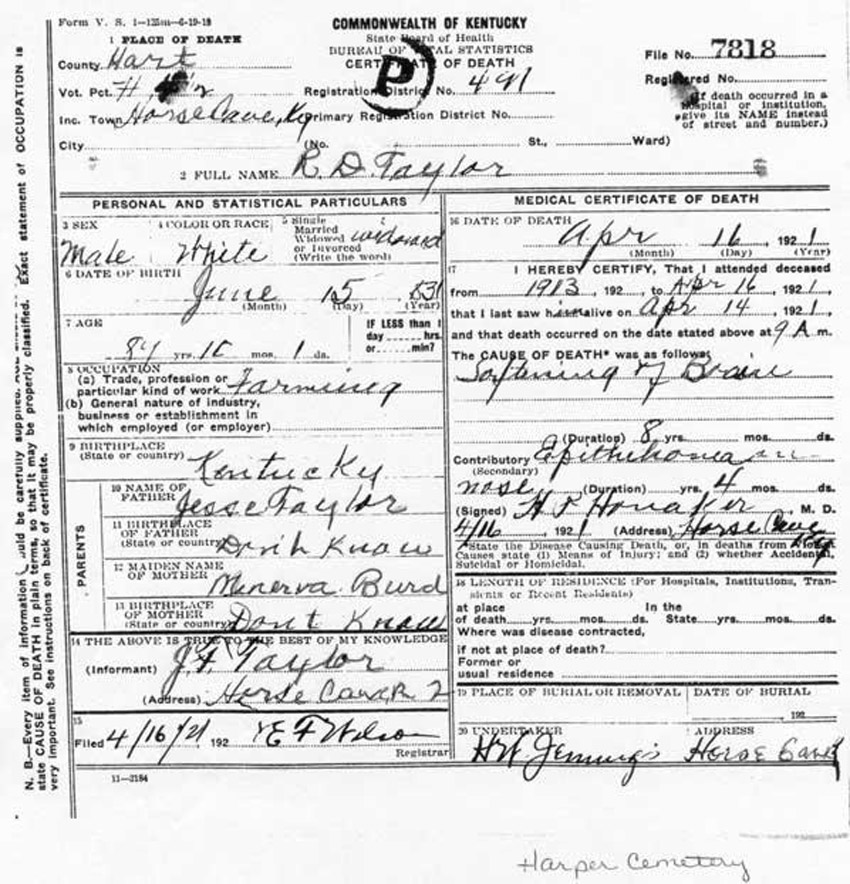 Form V. S. 1—125m—6-19-18
COMMONWEALTH OF KENTUCKY
State Board of Health
BUREAU OF VITAL STATISTICS
CERTIFICATE OF DEATH
P
File No. 7818
Registered No.
(If death occurred in a hospital or institution, give its NAME instead of street and number.)
1 PLACE OF DEATH
County Hart
Vot. Pct. H.
Registration District No. 491
Inc. Town Horse Cave, Ky Primary Registration District No.
City (No. St., Ward)
2 FULL NAME R. D. Taylor
PERSONAL AND STATISTICAL PARTICULARS
3 SEX Male
4 COLOR OR RACE White
5 Single Married Widowed or Divorced (Write the word) widowed
6 DATE OF BIRTH
June 15 831
(Month) (Day) (Year)
7 AGE
89 yrs. 10 mos. 1 ds.
IF LESS than 1 day hrs. or min?
8 OCCUPATION
(a) Trade, profession or particular kind of work Farming
(b) General nature of industry, business or establishment in which employed (or employer)
9 BIRTHPLACE
(State or country) Kentucky
PARENTS
10 NAME OF FATHER Jesse Taylor
11 BIRTHPLACE OF FATHER
(State or country) Don't Know
12 MAIDEN NAME OF MOTHER Minerva Burd
13 BIRTHPLACE OF MOTHER
(State or country) Don't Know
14 THE ABOVE IS TRUE TO THE BEST OF MY KNOWLEDGE
(Informant) J. F. Taylor
(Address) Horse Cave R 2
15
Filed 4/16/21 192 E F Wilson
Registrar
11—3184
MEDICAL CERTIFICATE OF DEATH
16 DATE OF DEATH
Apr 16, 1921
(Month) (Day) (Year)
17 I HEREBY CERTIFY, That I attended deceased
from 1913, 192 , to Apr 16, 1921,
that I last saw him alive on Apr 14, 1921,
and that death occurred on the date stated above at 9 A m.
The CAUSE OF DEATH* was as follows:
Softening of Brain
(Duration) 8 yrs. mos. ds.
Contributory Epithelioma on
(Secondary)
nose (Duration) yrs. 4 mos. ds.
(Signed) Honaker, M. D.
4/16, 1921 (Address) Horse Cave
*State the Disease Causing Death, or, in deaths from Violent Causes state (1) Means of Injury; and (2) whether Accidental, Suicidal or Homicidal.
18 LENGTH OF RESIDENCE (For Hospitals, Institutions, Transients or Recent Residents)
at place of death yrs. mos. ds. In the State yrs. mos. ds.
Where was disease contracted, if not at place of death?
Former or usual residence
19 PLACE OF BURIAL OR REMOVAL
DATE OF BURIAL
192
20 UNDERTAKER
H W Jennings
ADDRESS
Horse Cave
N. B.—Every item of information should be carefully supplied. Exact statement of OCCUPATION is
state CAUSE OF DEATH in plain terms, so that it may be properly classified.
very important. See instructions on back of certificate.
Harper Cemetery